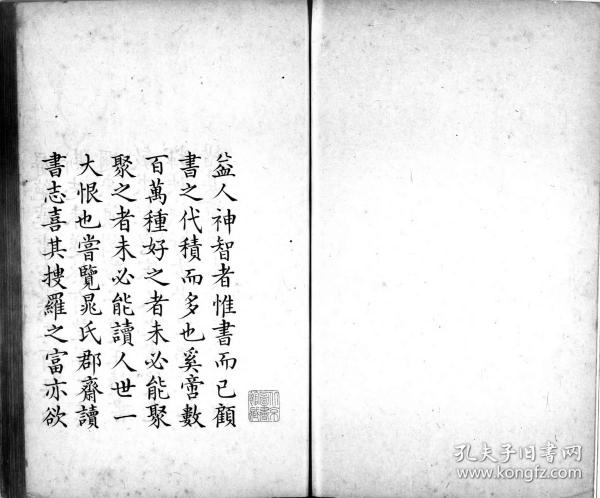 益人神智者惟書而已顧
書之代積而多也奚啻數
百萬種好之者未必能聚
聚之者未必能讀人世一
大恨也嘗覽晁氏郡齋讀
書志喜其搜羅之富亦欲
孔夫子旧书网
www.kongfz.com